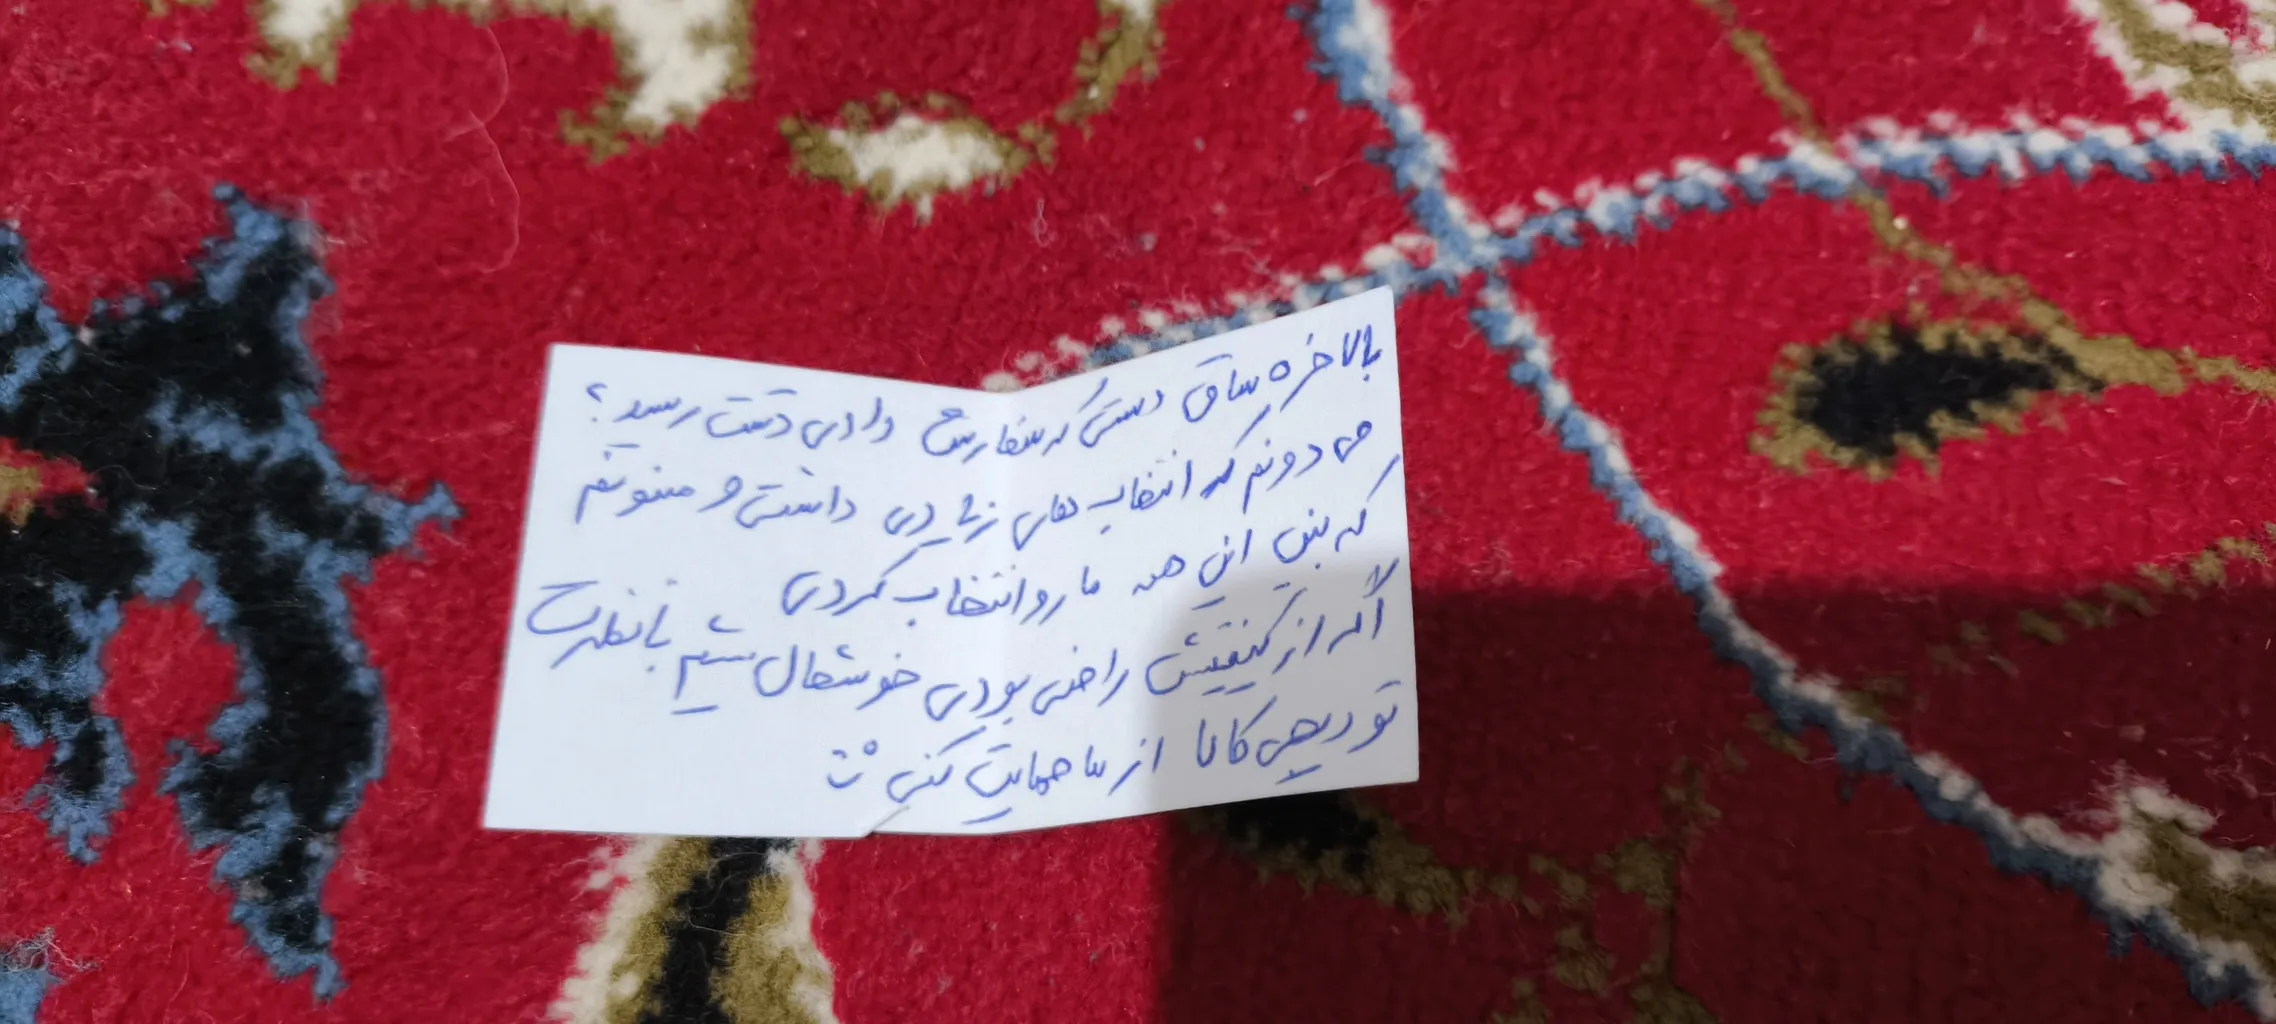 بالاخره ساق دستی که سفارش دادی دستت رسید؟
می دونم که انتخاب های زیادی داشتی و ممنونم
که بین این همه ما رو انتخاب کردی
اگه از کیفیتش راضی بودی خوشحال میشم با نظرت
تو دیجی کالا از ما حمایت کنی